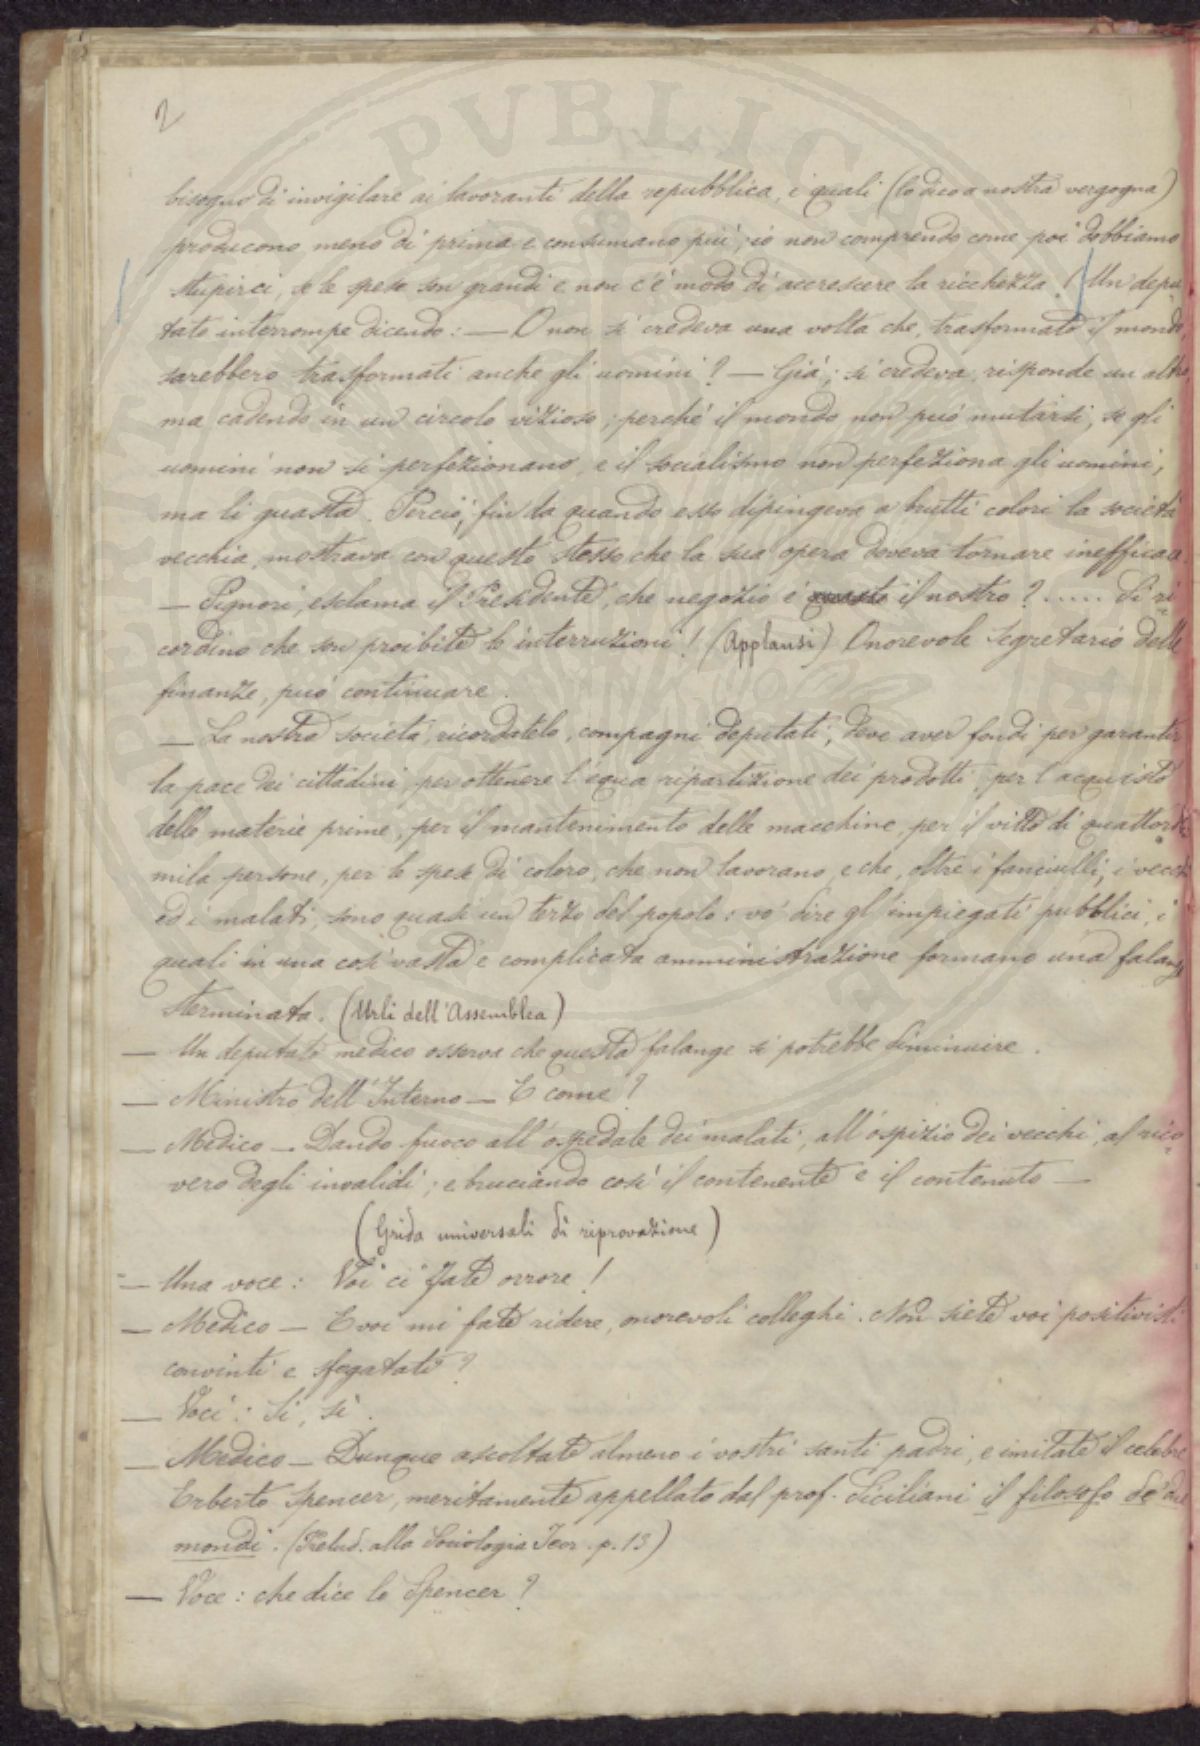 2
bisogno di invigilare ai lavoranti della repubblica, i quali (lo dico a nostra vergogna)
producono meno di prima e consumano più; io non comprendo come poi dobbiamo
stupirci, se le spese son grandi e non c'è modo di accrescere la ricchezza. (Un depu
tato interrompe dicendo: — O non si credeva una volta che, trasformato il mondo,
sarebbero trasformati anche gli uomini? — Già; si credeva, risponde un altro,
ma cadendo in un circolo vizioso; perché il mondo non può mutarsi, se gli
uomini non si perfezionano, e il socialismo non perfeziona gli uomini,
ma li guasta. Perciò, fin da quando esso dipingeva a brutti colori la società
vecchia, mostrava con questo stesso che la sua opera doveva tornare inefficace.
— Signori, esclama il Presidente, che negozio è questo il nostro? ..... Si ri
cordino che son proibite le interruzioni! (Applausi) Onorevole Segretario delle
finanze, può continuare.
— La nostra società, ricordatelo, compagni deputati, deve aver fondi per garantir
la pace dei cittadini, per ottenere l'equa ripartizione dei prodotti, per l'acquisto
delle materie prime, per il mantenimento delle macchine, per il vitto di quattordi
mila persone, per le spese di coloro, che non lavorano, e che, oltre i fanciulli, i vecchi
ed i malati, sono quasi un terzo del popolo: vo' dire gl'impiegati pubblici, i
quali in una così vasta e complicata amministrazione formano una falange
sterminata. (Urli dell'Assemblea)
— Un deputato medico osserva che questa falange si potrebbe diminuire.
— Ministro dell'Interno — E come?
— Medico — Dando fuoco all'ospedale dei malati, all'ospizio dei vecchi, al rico
vero degli invalidi; e bruciando così il contenente e il contenuto —
(Grida universali di riprovazione)
— Una voce: Voi ci fate orrore!
— Medico — E voi mi fate ridere, onorevoli colleghi. Non siete voi positivisti
convinti e sfegatati?
— Voci: Sì, sì.
— Medico — Dunque ascoltate almeno i vostri santi padri, e imitate il celebre
Erberto Spencer, meritamente appellato dal prof. Siciliani il filosofo de' due
mondi. (Prelud. alla Sociologia Teor. p. 13)
— Voce: che dice lo Spencer?